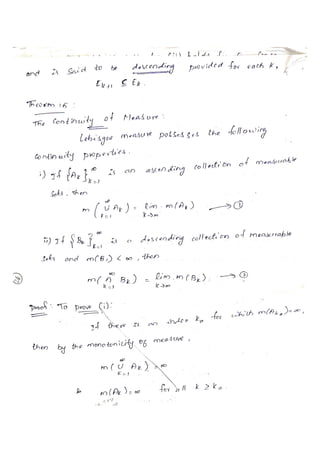 and is said to be descending provided for each k,
E_{k+1} ⊆ E_k.
Theorem 15:
The Continuity of Measure:
Lebisgue measure possesses the following
Continuity properties.
i) If {A_k}_{k=1}^∞ is an ascending collection of measurable
sets, then
m ( ∞∪k=1 A_k ) = lim k→∞ m(A_k) → ①
ii) If {B_k}_{k=1}^∞ is a descending collection of measurable
sets and m(B_1) < ∞, then
m( ∞∩k=1 B_k ) = lim k→∞ m(B_k). → ②
Proof: To prove (i):
If there is an index k_0 for which m(A_{k_0}) = ∞,
then by the monotonicity of measure,
m ( ∞∪k=1 A_k ) = ∞
& m(A_k) = ∞ for all k ≥ k_0.